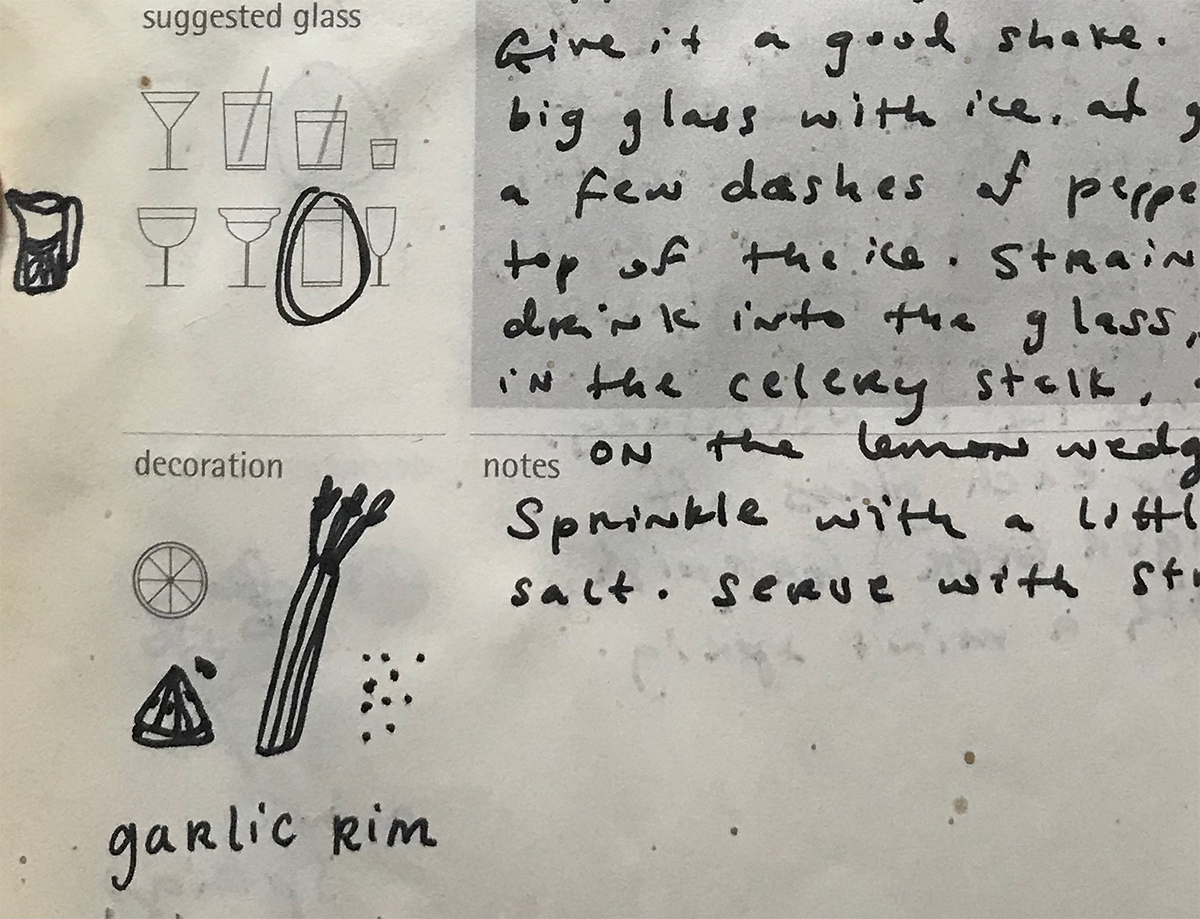 suggested glass
Give it a good shake.
big glass with ice. ad
a few dashes of
top of the ice. Strain
drink into the glass,
in the celery stalk,
decoration
notes
on the lemon
Sprinkle with a
salt. Serve with
garlic rim